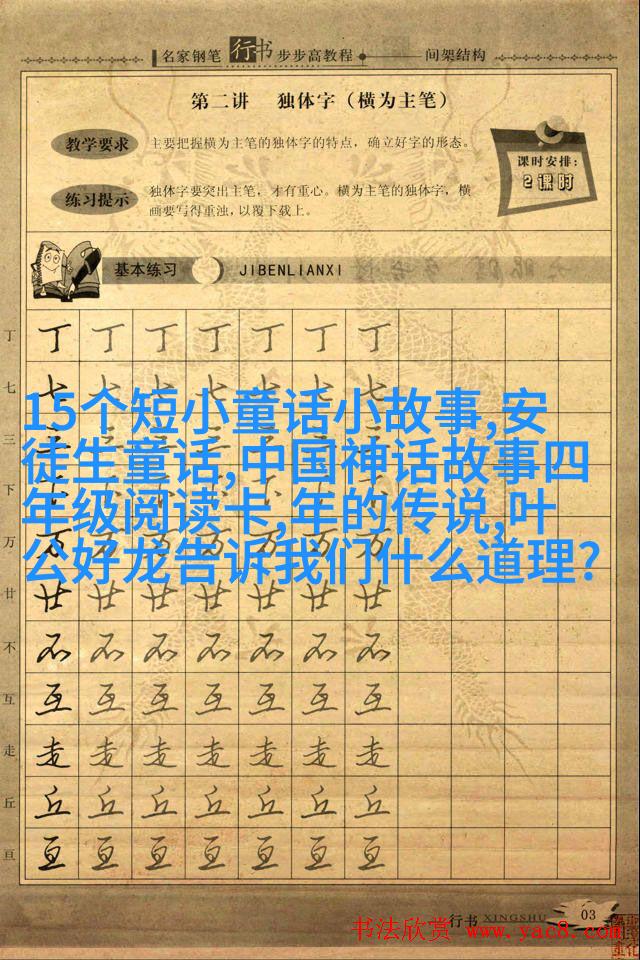 名家钢笔行书步步高教程 间架结构
第二讲 独体字（横为主笔）
教学要求
主要把握横为主笔的独体字的特点，确立好字的形态。
课时安排：
2课时
练习提示
独体字要突出主笔，才有重心。横为主笔的独体字，横
画要写得重浊，以覆下载上。
基本练习 JIBENLIANXI
丁 丁 丁 丁 丁 丁 丁 丁
七 七 七 七 七 七 七 七
15个短小童话小故事,安
三 三 三 三 三 三 三 三
徒生童话,中国神话故事四
下 下 下 下 下 下 下 下
年级阅读卡,年的传说,叶
万 万 万 万 万 万 万 万
公好龙告诉我们什么道理?
廿 廿 廿 廿 廿 廿 廿 廿
不 不 不 不 不 不 不 不
互 互 互 互 互 互 互 互
走 走 走 走 走 走 走 走
丘 丘 丘 丘 丘 丘 丘 丘
亘 亘 亘 亘 亘 亘 亘 亘
行书 XINGSHU 03
书法欣赏 www.yac8.com